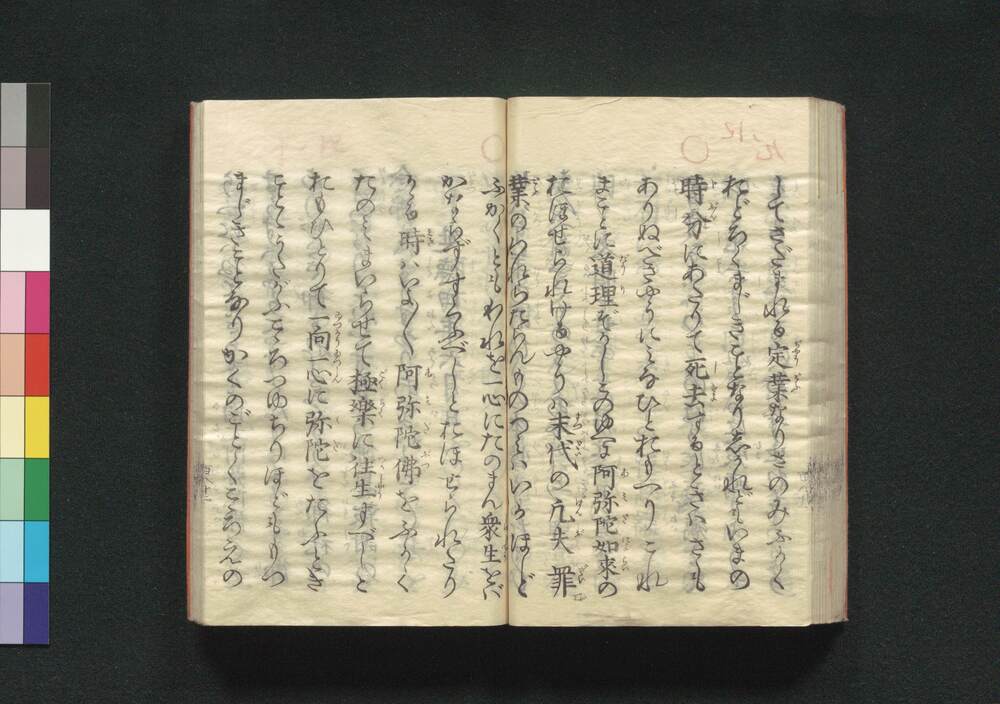 してさだまれる定業なりさのみふかく
おどろくまじきことなりしかれどもいまの
時分にあたりて死去するときはさも
ありぬべきやうにみなひとおもへりこれ
まことに道理ぞかしこのゆへに阿弥陀如来の
おほせられけるやうは末代の凡夫罪
業のわれらたらんものつみはいかほど
ふかくともわれを一心にたのまん衆生をば
かならずすくふべしとおほせられたり
かゝる時はいよ〳〵阿弥陀佛をふかく
たのみまいらせて極楽に往生すべしと
おもひとりて一向一心に弥陀をたふとき
ことゝうたがふこゝろつゆちりほどももつ
まじきことなりかくのごとくこゝろえの